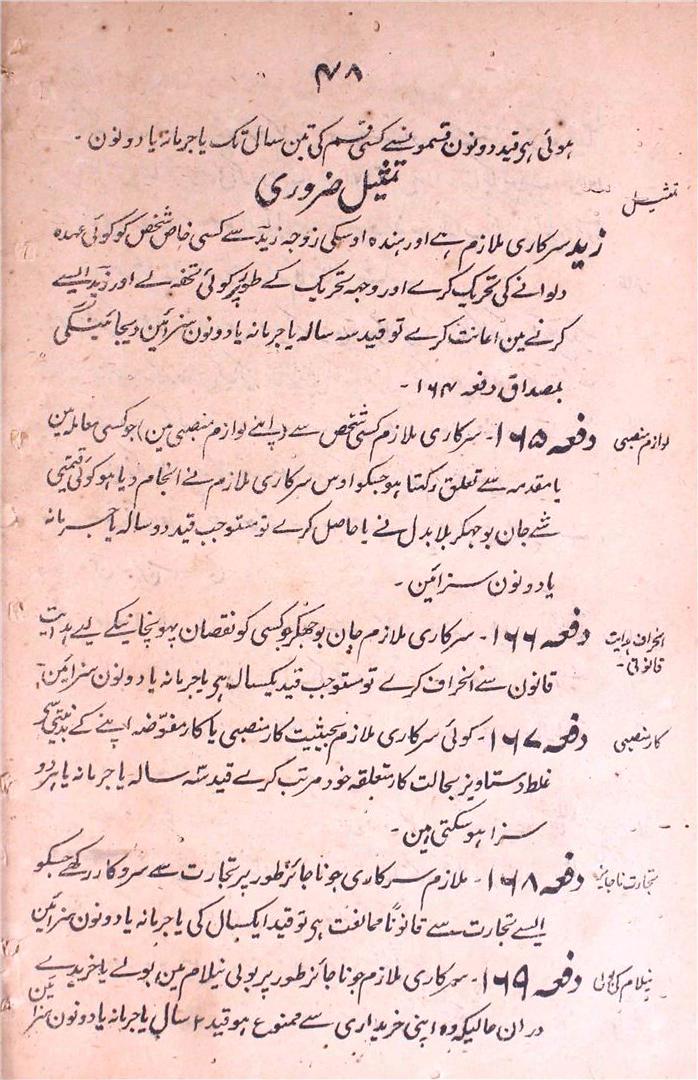 ۴۸
ہوئی ہی قید دونون قسمونسے کسی قسم کی تین سال تک یا جرمانہ یا دونون۔
تمثیل
تمثیل ضروری
زید سرکاری ملازم ہے اور ہندہ اوسکی زوجہ زید سے کسی خاص شخص کو کوئی عہدہ
دلوانے کی تحریک کرے اور وجہہ تحریک کے طور پر کوئی تحفہ لے اور زید ایسے
کرنے مین اعانت کرے تو قید سہ سالہ یا جرمانہ یا دونون سزائین دیجائینگی
بمصداق دفعہ ۱۶۴۔
لوازم منصبی
دفعہ ۱۶۵۔ سرکاری ملازم کسی شخص سے (اپنے لوازم منصبی مین) جو کسی معاملہ مین
یا مقدمہ سے تعلق رکہتا ہو جسکو اوس سرکاری ملازم نے انجام دیا ہو کوئی قیمتی
شے جان بوجہکر بلا بدل لے یا حاصل کرے تو مستوجب قید دو سالہ یا جرمانہ
یا دونون سزائین۔
انحراف ہدایت
قانونی۔
دفعہ ۱۶۶۔ سرکاری ملازم جان بوجہکر جو کسی کو نقصان پہونچانیکے لیے ہدایت
قانون سے انحراف کرے تو مستوجب قید یکسالہ ہی یا جرمانہ یا دونون سزائین۔
کار منصبی
دفعہ ۱۶۷۔ کوئی سرکاری ملازم بحیثیت کار منصبی یا کار مفوّضہ اپنے کے بدنیتی سے
غلط دستاویز بحالت کار متعلقہ خود مرتب کرے قید سہ سالہ یا جرمانہ یا ہر دو
سزا ہو سکتی ہین۔
تجارت ناجائز
دفعہ ۱۶۸۔ ملازم سرکاری جو ناجائز طور پر تجارت سے سروکار رکھے جسکو
ایسے تجارت سے قانوناً ممانعت ہی تو قید ایکسال کی یا جرمانہ یا دونون سزائین
نیلام کی بولی
دفعہ ۱۶۹۔ سرکاری ملازم جو ناجائز طور پر بولی نیلام مین بولے یا خریدے
در ان حالیکہ وہ اپنی خریداری سے ممنوع ہو قید ۲ سال یا جرمانہ یا دونون سزائین